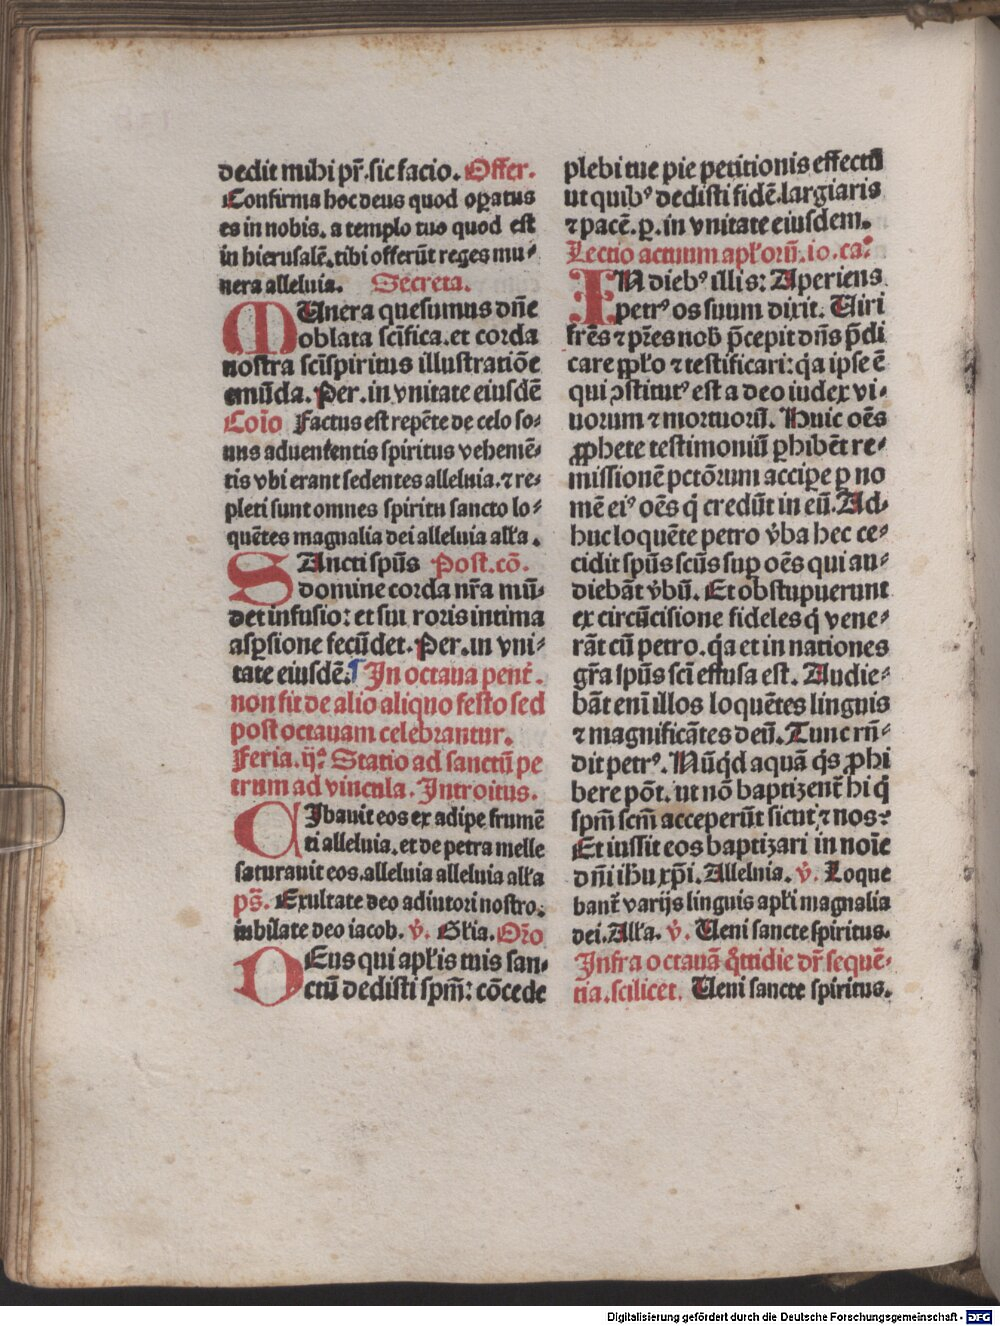 dedit mihi pr̄.sic facio. Offer.
Confirma hoc deus quod oꝑatus
es in nobis. a templo tuo quod est
in hierusalē.tibi offerūt reges mu⸗
nera alleluia. Secreta.
MUnera quesumus dn̄e
oblata scīfica.et corda
nostra scīspiritus illustratiōe
emūda. Per.in vnitate eiusdē
Coīo Factus est repēte de celo so⸗
nus aduenientis spiritus vehemē⸗
tis vbi erant sedentes alleluia.⁊ re⸗
pleti sunt omnes spiritu sancto lo⸗
quētes magnalia dei alleluia alła.
SAncti spūs Post.cō.
domine corda nr̄a mū⸗
det infusio: et sui roris intima
asꝑsione fecūdet. Per.in vni⸗
tate eiusdē.¶ In octaua pent̄.
non fit de alio aliquo festo sed
post octauam celebrantur.
Feria.ij.ͣ Statio ad sanctū pe
trum ad vincula. Introitus.
CIbauit eos ex adipe frumē
ti alleluia.et de petra melle
saturauit eos.alleluia alleluia alła
ps̄. Exultate deo adiutori nostro:
iubilate deo iacob. v̄. Głia. Or̄o
DEus qui apłis tuis san⸗
ctū dedisti spm̄: cōcede
plebi tue pie petitionis effectū
ut quibꝰ dedisti fidē.largiaris
⁊ pacē. ꝑ. in vnitate eiusdem.
Lectio actuum apłorū. io. ca.ͦ
IN diebꝰ illis: Aperiens
petrꝰ os suum dixit. Uiri
frēs ⁊ pr̄es nob̄ p̄cepit dn̄s p̄di
care ꝓpło ⁊ testificari: q̄a ipse ē
qui ꝯstitutꝰ est a deo iudex vi⸗
uorum ⁊ mortuorū. Huic oēs
ꝓphete testimoniū ꝑhibēt re⸗
missionē pctōrum accipe ꝑ no
mē eiꝰ oēs q̇ credūt in eū. Ad⸗
huc loquēte petro v̄ba hec ce⸗
cidit spūs scūs suꝑ oēs qui au⸗
diebāt v̄bū. Et obstupuerunt
ex circūcisione fideles q̇ vene⸗
rāt cū petro. q̇a et in nationes
gr̄a spūs scī effusa est. Audie⸗
bāt enī illos loquētes linguis
⁊ magnificātes deū. Tunc rn̄⸗
dit petrꝰ. Nūq̇d aquā q̇s ꝓhi
bere pōt. ut nō baptizent̄ hi q̇
spm̄ scm̄ acceperūt sicut ⁊ nos?
Et iussit eos baptizari in noīe
dn̄i ihū xp̄i. Alleluia. v̄. Loque
bant̄ varijs linguis apłi magnalia
dei. Alła. v̄. Ueni sancte spiritus.
Infra octauā q̊ttidie dr̄ sequē⸗
tia. scilicet. Ueni sancte spiritus.
Digitalisierung gefördert durch die Deutsche Forschungsgemeinschaft - DFG